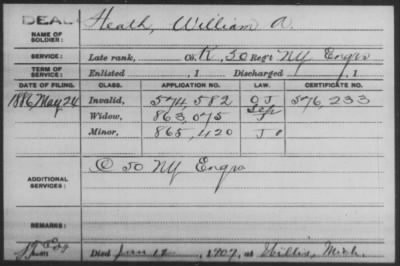 DEAD
Heath, William A.
NAME OF SOLDIER:
SERVICE: Late rank, Co. K, 50 Reg't NY Engrs
TERM OF SERVICE: Enlisted , 1 Discharged , 1
DATE OF FILING. CLASS. APPLICATION NO. LAW. CERTIFICATE NO.
1886, May 24 Invalid, 574,582 576,233
Widow, 863,075
Minor, 865,420
ADDITIONAL SERVICES: C 50 NY Engrs
REMARKS:
Died 1907, at Willis, Mich.